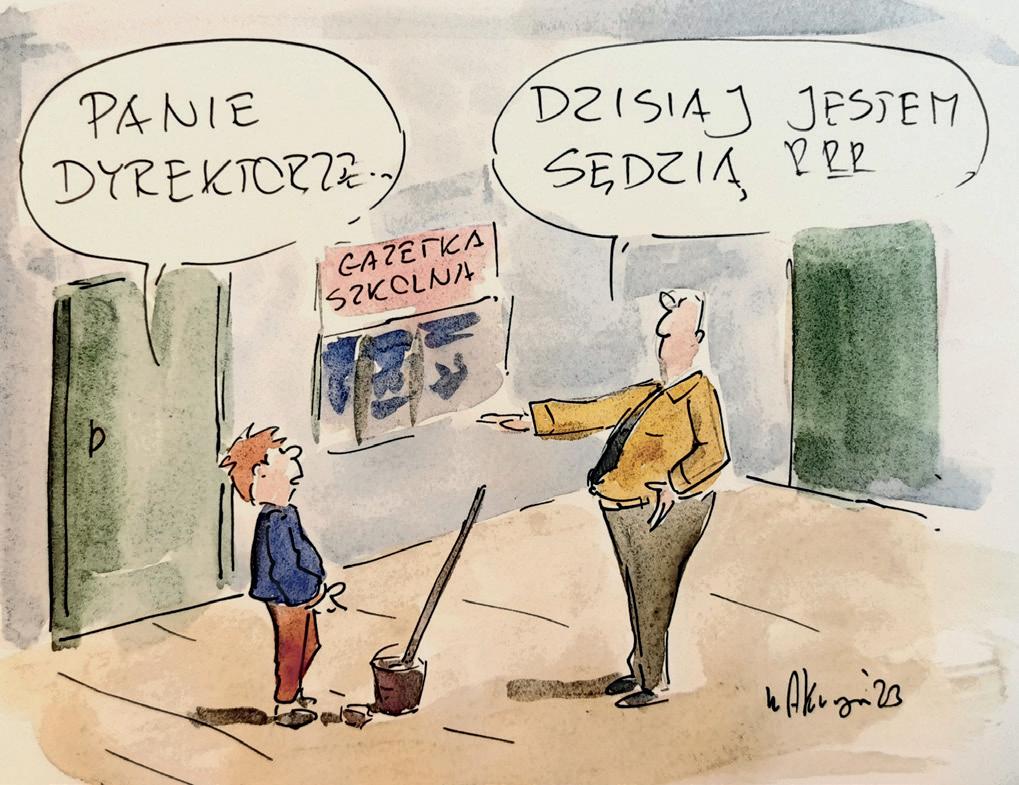 PANIE
DYREKTORZE...
DZISIAJ JESTEM
SĘDZIĄ
GAZETKA
SZKOLNA
'23